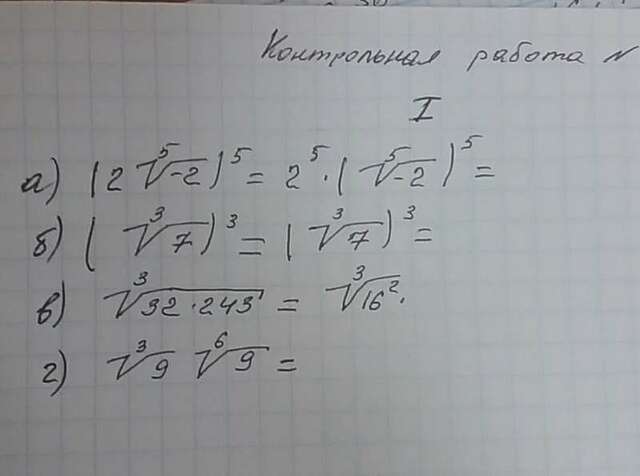 Контрольная работа N
I
а) (2 ⁵√-2)⁵ = 2⁵·(⁵√-2)⁵ =
б) (³√7)³ = (³√7)³ =
в) ³√32·243 = ³√16²·
г) ³√9 ⁶√9 =